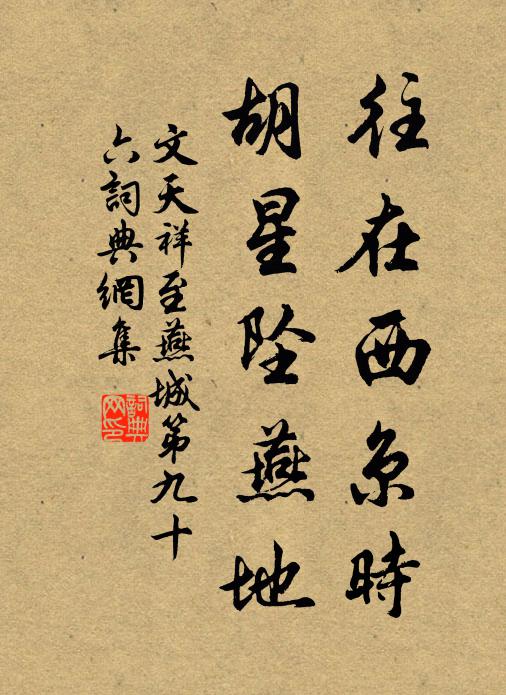 往在西京時
胡星坠燕地
文天祥至燕城第九十
六詞典網集
詞典
网印